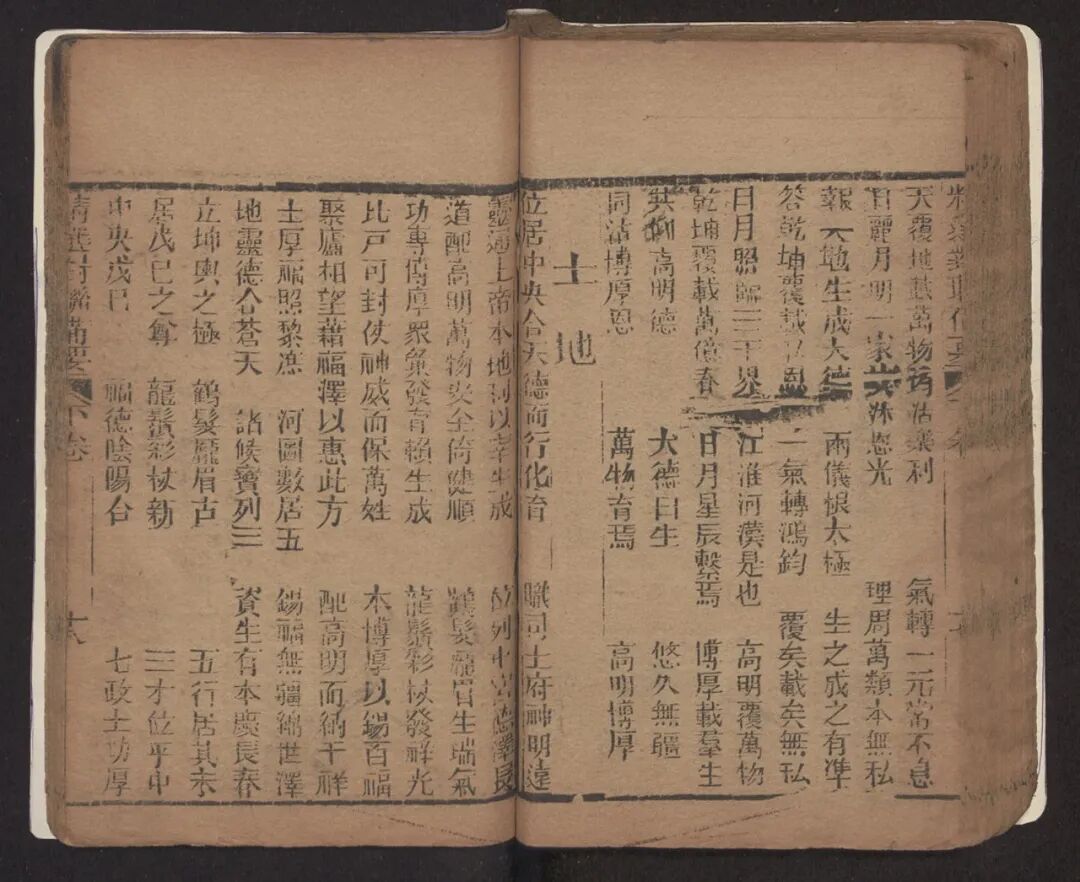 天覆地載萬物沾樂利 氣轉一元常不息
日麗月明一家共沐恩光 理周萬類本無私
報天地生成大德 兩儀根太極 生之成之有準
答乾坤覆載弘恩 二氣轉鴻鈞 覆矣載矣無私
日月照臨三千界 江淮河漢是也 高明覆萬物
乾坤覆載萬億春 日月星辰繫焉 博厚載羣生
共仰高明德 大德曰生 悠久無疆
同沾博厚恩 萬物育焉 高明博厚
土地
位居中央合天德而行化育 職司土府神明遠
靈通上帝本地利以幸生成 位列中宮德澤長
道配高明萬物安全倚健順 鶴髮龐眉生瑞氣
功專博厚衆彙發育賴生成 龍鬚彩杖發祥光
比戶可封仗神威而保萬姓 本博厚以錫百福
聚廬相望藉福澤以惠此方 配高明而納千祥
土厚福照黎庶 河圖數居五 錫福無疆綿世澤
地靈德合蒼天 諸候寶列三 資生有本慶長春
立坤輿之極 鶴髮龐眉古 五行居其末
居戊己之尊 龍鬚彩杖新 三才位乎中
中央戊己 福德陰陽台 七政土功厚
精選對聯備要 下卷 十六